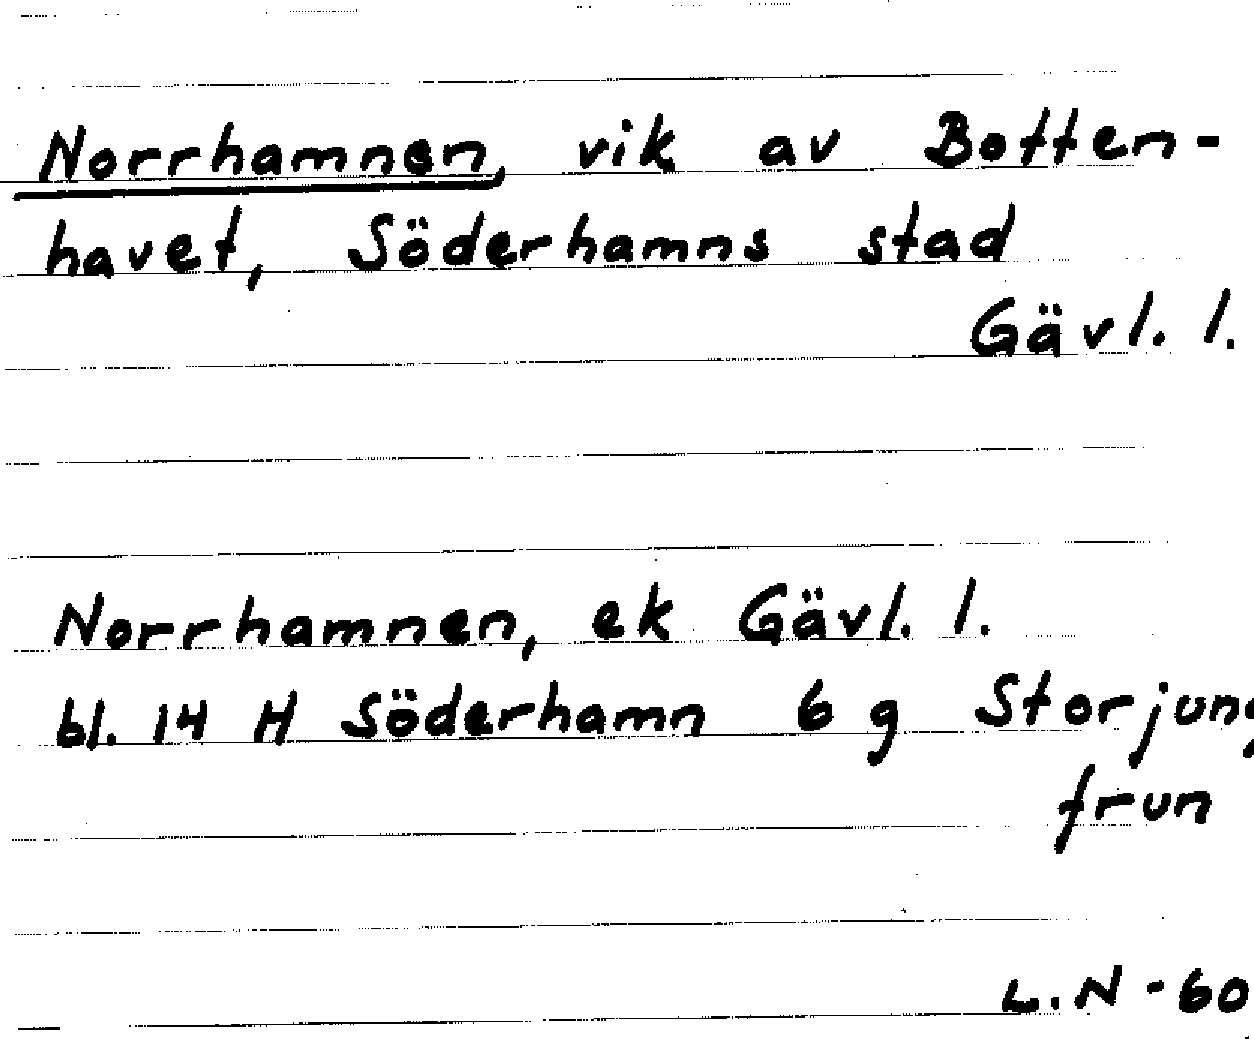 Norrhamnen, vik av Botten-
havet, Söderhamns stad
Gävl. l.
Norrhamnen, ek Gävl. l.
bl. 14 H Söderhamn 6 g Storjung
frun
L.N -60